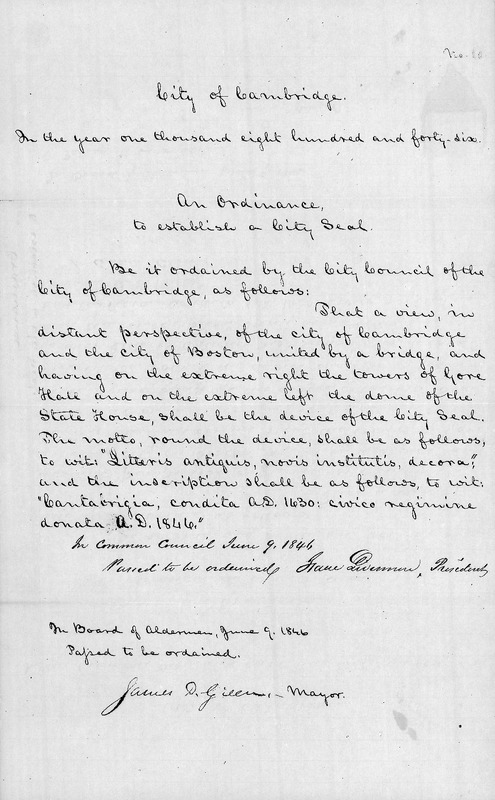 City of Cambridge.
In the year one thousand eight hundred and forty-six.
An Ordinance,
to establish a City Seal.
Be it ordained by the City Council of the
City of Cambridge, as follows:
That a view, in
distant perspective, of the city of Cambridge
and the city of Boston, united by a bridge, and
having on the extreme right the towers of Gore
Hall and on the extreme left the dome of the
State House, shall be the device of the City Seal.
The motto, round the device, shall be as follows,
to wit: "Litteris antiquis, novis institutis, decora";
and the inscription shall be as follows, to wit:
"Cantabrigia, condita A.D. 1630: civico regimine
donata A.D. 1846."
In Common Council June 9, 1846
Passed to be ordained, Isaac Livermore, President
In Board of Aldermen, June 9. 1846
Passed to be ordained.
James D. Green, - Mayor.